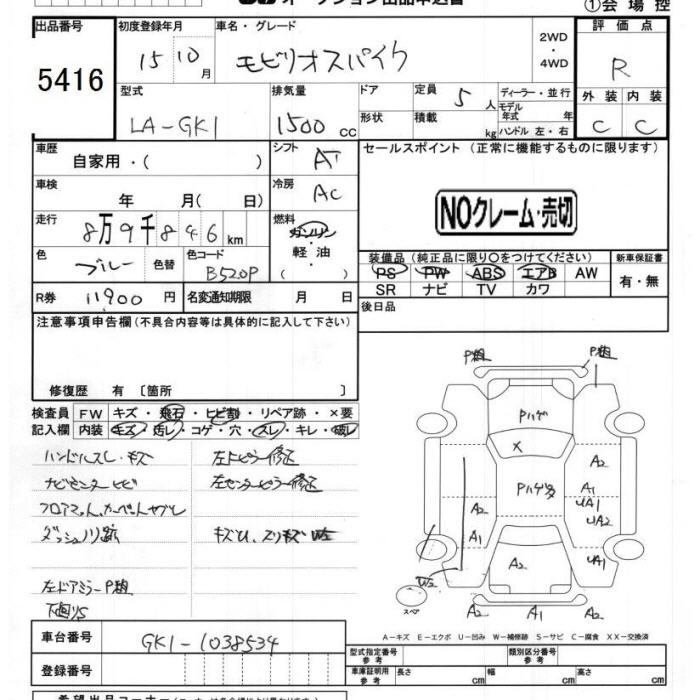 オークション出品申込書
①会場控
出品番号 5416
初度登録年月 15 10月
車名・グレード モビリオスパイク
2WD・4WD
評価点 R
型式 LA-GK1
排気量 1500 cc
ドア 形状
定員 5人
積載 kg
ディーラー・並行
モデル年式 年
ハンドル 左・右
外装 C
内装 C
車歴 自家用・( )
シフト AT
セールスポイント (正常に機能するものに限ります)
車検 年 月( 日)
冷房 AC
NOクレーム・売切
走行 8万9千846 km
燃料 ガソリン 軽油 ( )
色 ブルー 色替
色コード B520P
装備品 (純正品に限り○をつけてください)
PS PW ABS エアB AW
SR ナビ TV カワ
新車保証書 有・無
R券 11900 円
名変通知期限 月 日
後日品
注意事項申告欄 (不具合内容等は具体的に記入して下さい)
修復歴 有 〔箇所 〕
検査員記入欄
FW キズ・飛石・ヒビ割・リペア跡・×要
内装 キズ・汚レ・コゲ・穴・スレ・キレ・破レ
ハンドルスレ・キズ
左Fピラー修正
ナビセンターヒビ
左センターピラー修正
フロアマット、カーペットヤブレ
ダッシュノリ跡
左ドアミラーP粗
下廻りS
P粗 P粗
Pハゲ
X
Pハゲ多
A2
A1
UA1
UA2
UA1
A2
A1
A2
W2
スペア
A2 A1 A2
A-キズ E-エクボ U-凹み W-補修跡 S-サビ C-腐食 XX-交換済
車台番号 GK1-1038534
型式指定番号 参考
類別区分番号 参考
登録番号
車庫証明用 参考 長さ cm 幅 cm 高さ cm